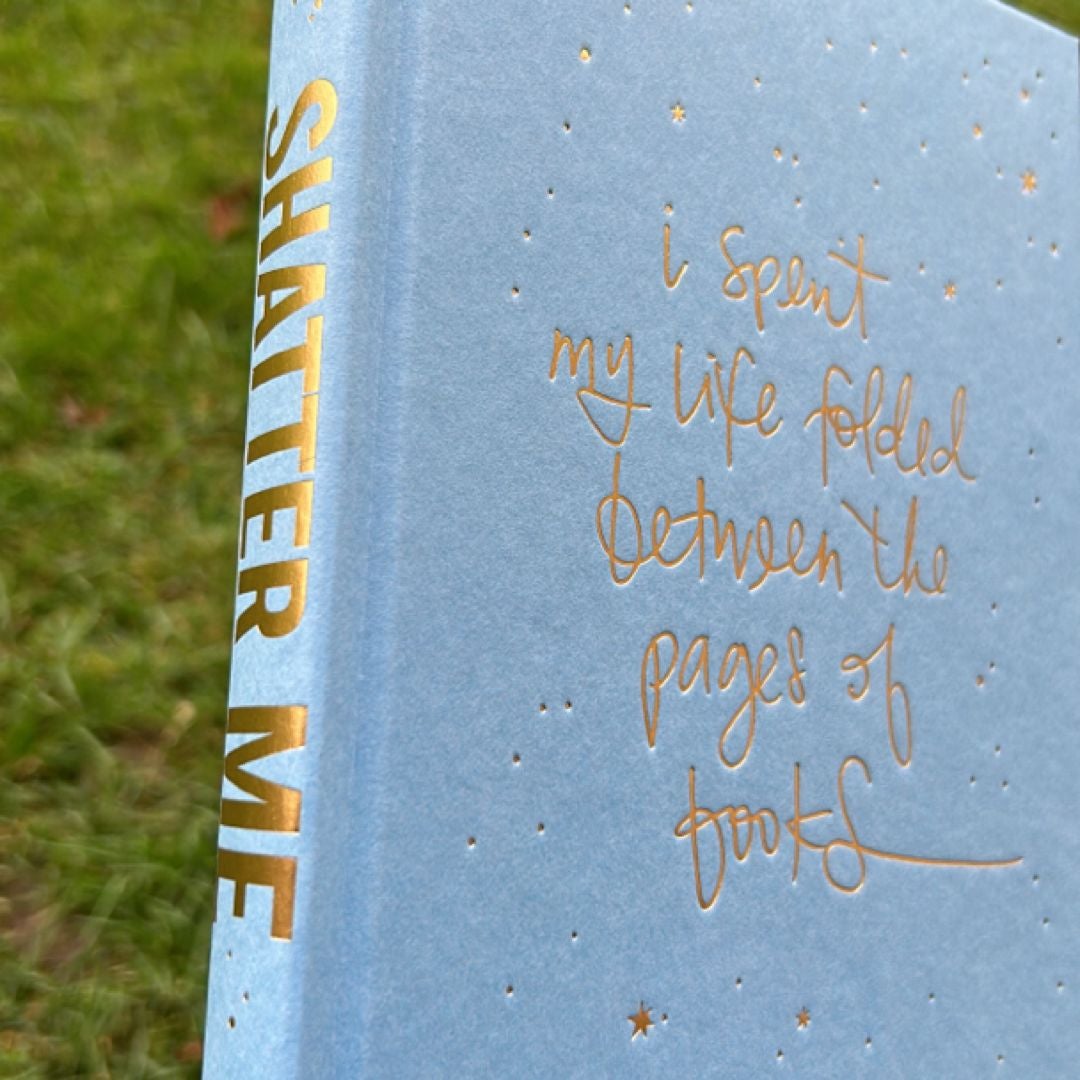 SHATTER ME
i spent
my life folded
between the
pages of
books